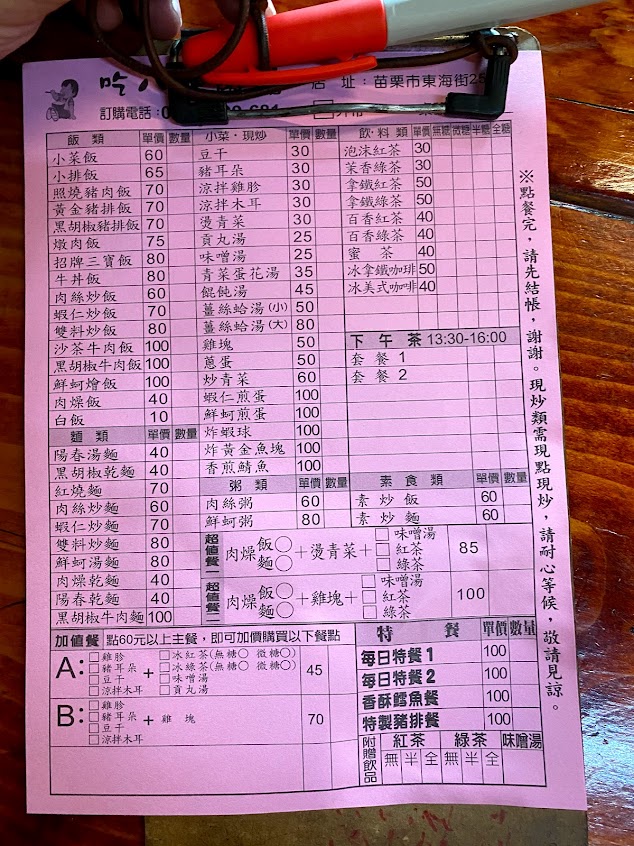 吃
店 址：苗栗市東海街
訂購電話：0
飯 類 單價 數量
小菜飯 60
小排飯 65
照燒豬肉飯 70
黃金豬排飯 70
黑胡椒豬排飯 70
燉肉飯 75
招牌三寶飯 80
牛丼飯 80
肉絲炒飯 60
蝦仁炒飯 70
雙料炒飯 80
沙茶牛肉飯 100
黑胡椒牛肉飯 100
鮮蚵燴飯 100
肉燥飯 40
白飯 10
麵 類 單價 數量
陽春湯麵 40
黑胡椒乾麵 40
紅燒麵 70
肉絲炒麵 60
蝦仁炒麵 70
雙料炒麵 80
鮮蚵湯麵 80
肉燥乾麵 40
陽春乾麵 40
黑胡椒牛肉麵 100
小菜·現炒 單價 數量
豆干 30
豬耳朵 30
涼拌雞胗 30
涼拌木耳 30
燙青菜 30
貢丸湯 25
味噌湯 25
青菜蛋花湯 35
餛飩湯 45
薑絲蛤湯(小) 50
薑絲蛤湯(大) 80
雞塊 50
蔥蛋 50
炒青菜 60
蝦仁煎蛋 100
鮮蚵煎蛋 100
炸蝦球 100
炸黃金魚塊 100
香煎鯖魚 100
粥 類 單價 數量
肉絲粥 60
鮮蚵粥 80
飲·料 類 單價 無糖 微糖 半糖 全糖
泡沫紅茶 30
茉香綠茶 30
拿鐵紅茶 50
拿鐵綠茶 50
百香紅茶 40
百香綠茶 40
蜜 茶 40
冰拿鐵咖啡 50
冰美式咖啡 40
下 午 茶 13:30-16:00
套 餐 1
套 餐 2
素 食 類 單價 數量
素 炒 飯 60
素 炒 麵 60
超值餐一 肉燥 飯○ 麵○ +燙青菜+ □味噌湯 □紅茶 □綠茶 85
超值餐二 肉燥 飯○ 麵○ +雞塊+ □味噌湯 □紅茶 □綠茶 100
加值餐 點60元以上主餐，即可加價購買以下餐點
A: □雞胗 □豬耳朵 □豆干 □涼拌木耳 + □冰紅茶(無糖○ 微糖○) □冰綠茶(無糖○ 微糖○) □味噌湯 □貢丸湯 45
B: □雞胗 □豬耳朵 □豆干 □涼拌木耳 + 雞 塊 70
特 餐 單價 數量
每日特餐1 100
每日特餐2 100
香酥鱈魚餐 100
特製豬排餐 100
附贈飲品 紅茶 綠茶 味噌湯
無 半 全 無 半 全
※點餐完，請先結帳，謝謝。現炒類需現點現炒，請耐心等候，敬請見諒。